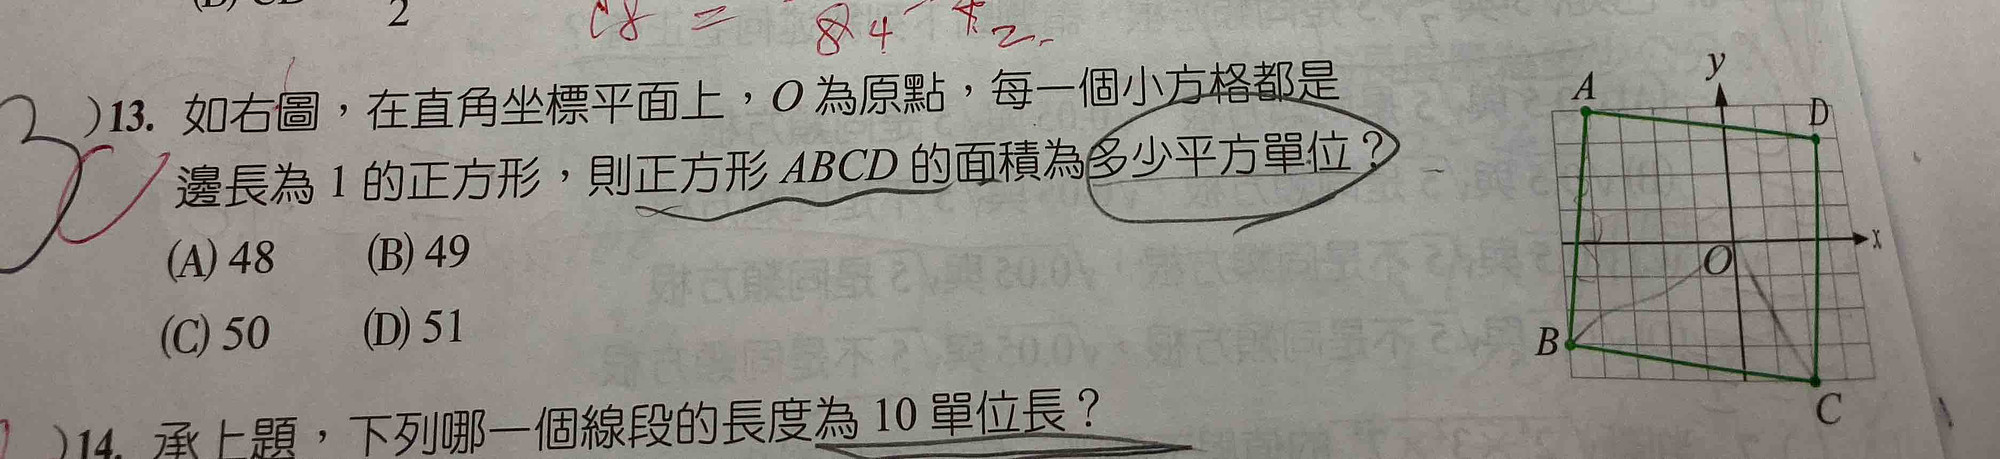 2
c8 = 84 + 2
)13. 如右圖，在直角坐標平面上，O 為原點，每一個小方格都是
邊長為 1 的正方形，則正方形 ABCD 的面積為多少平方單位？
(A) 48 (B) 49
(C) 50 (D) 51
A
y
D
x
O
B
C
)14. 承上題，下列哪一個線段的長度為 10 單位長？